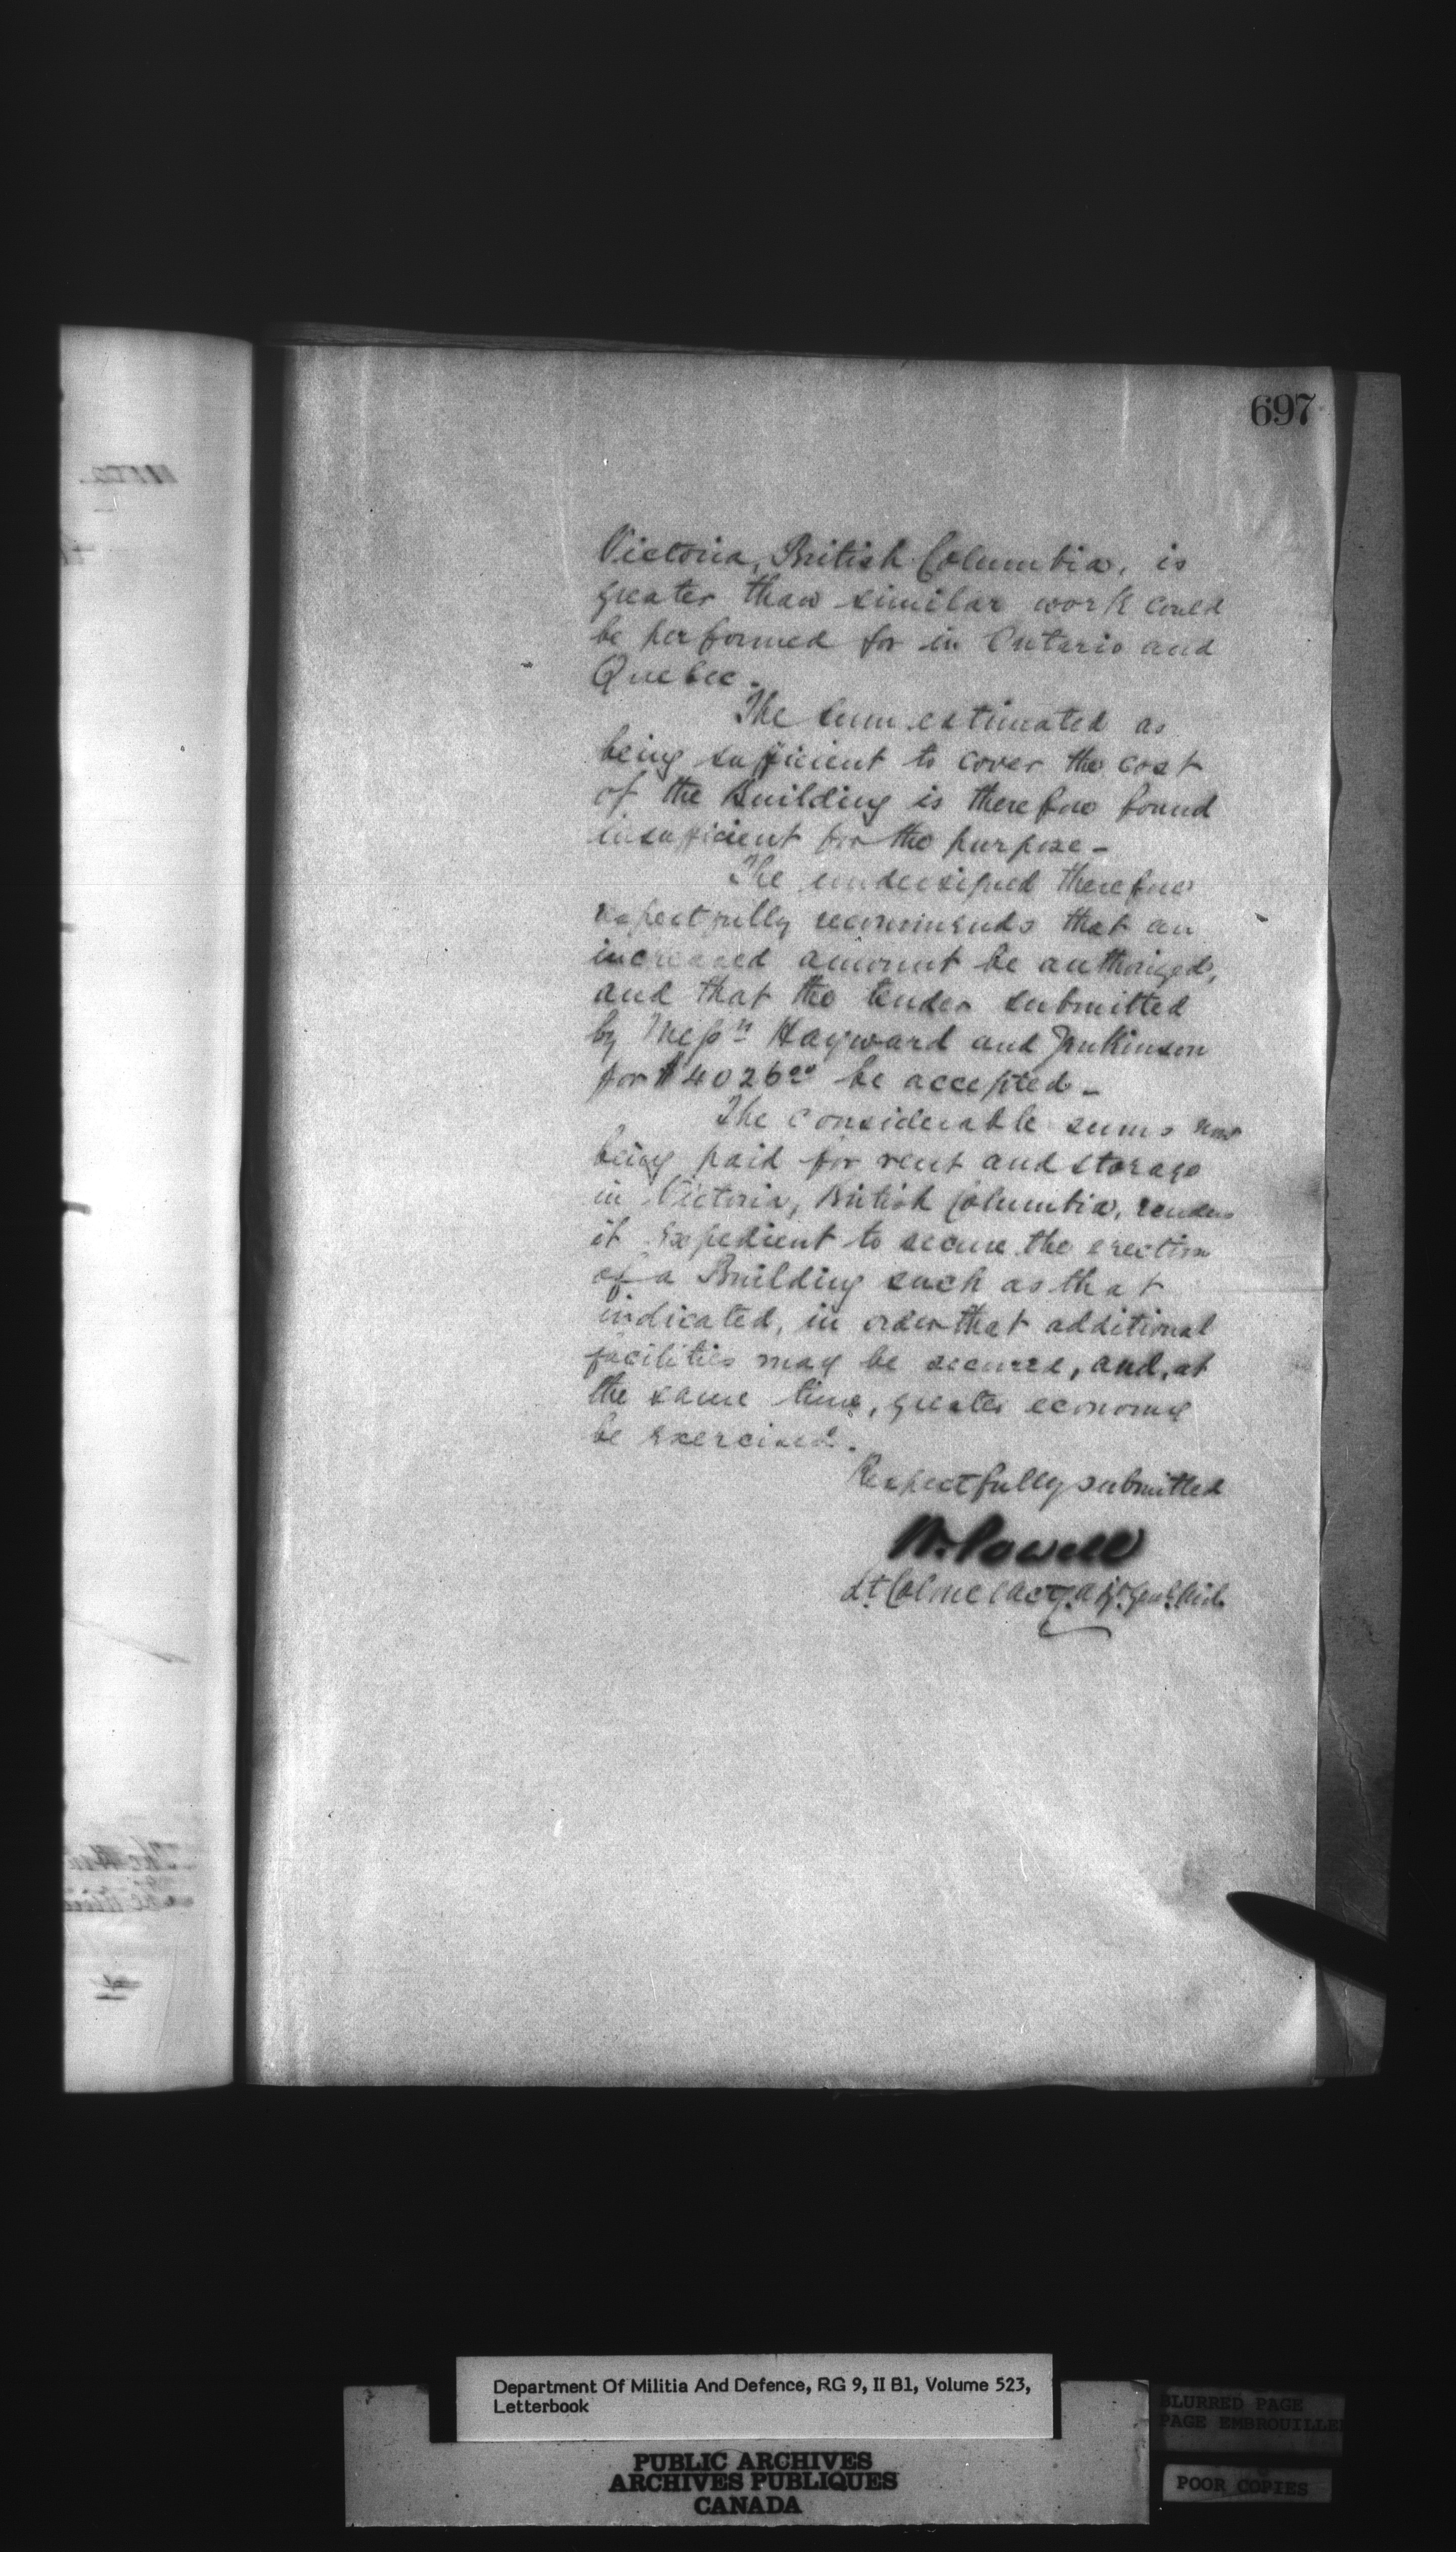 697
Victoria, British Columbia, is
greater than similar work could
be performed for in Ontario and
Quebec.
The sum estimated as
being sufficient to cover the cost
of the Building is therefore found
insufficient for the purpose -
The undersigned therefore
respectfully recommends that an
increased amount be authorized,
and that the tender submitted
by Messrs Hayward and Jenkinson
for $4026.00 be accepted -
The considerable sums now
being paid for rent and storage
in Victoria, British Columbia, renders
it expedient to secure the erection
of a Building such as that
indicated, in order that additional
facilities may be secured, and, at
the same time, greater economy
be exercised.
Respectfully submitted
W. Powell
Lt. Colonel Actg. Adjt. Genl. Mil.
Department Of Militia And Defence, RG 9, II B1, Volume 523,
Letterbook
PUBLIC ARCHIVES
ARCHIVES PUBLIQUES
CANADA
BLURRED PAGE
PAGE EMBROUILLEE
POOR COPIES